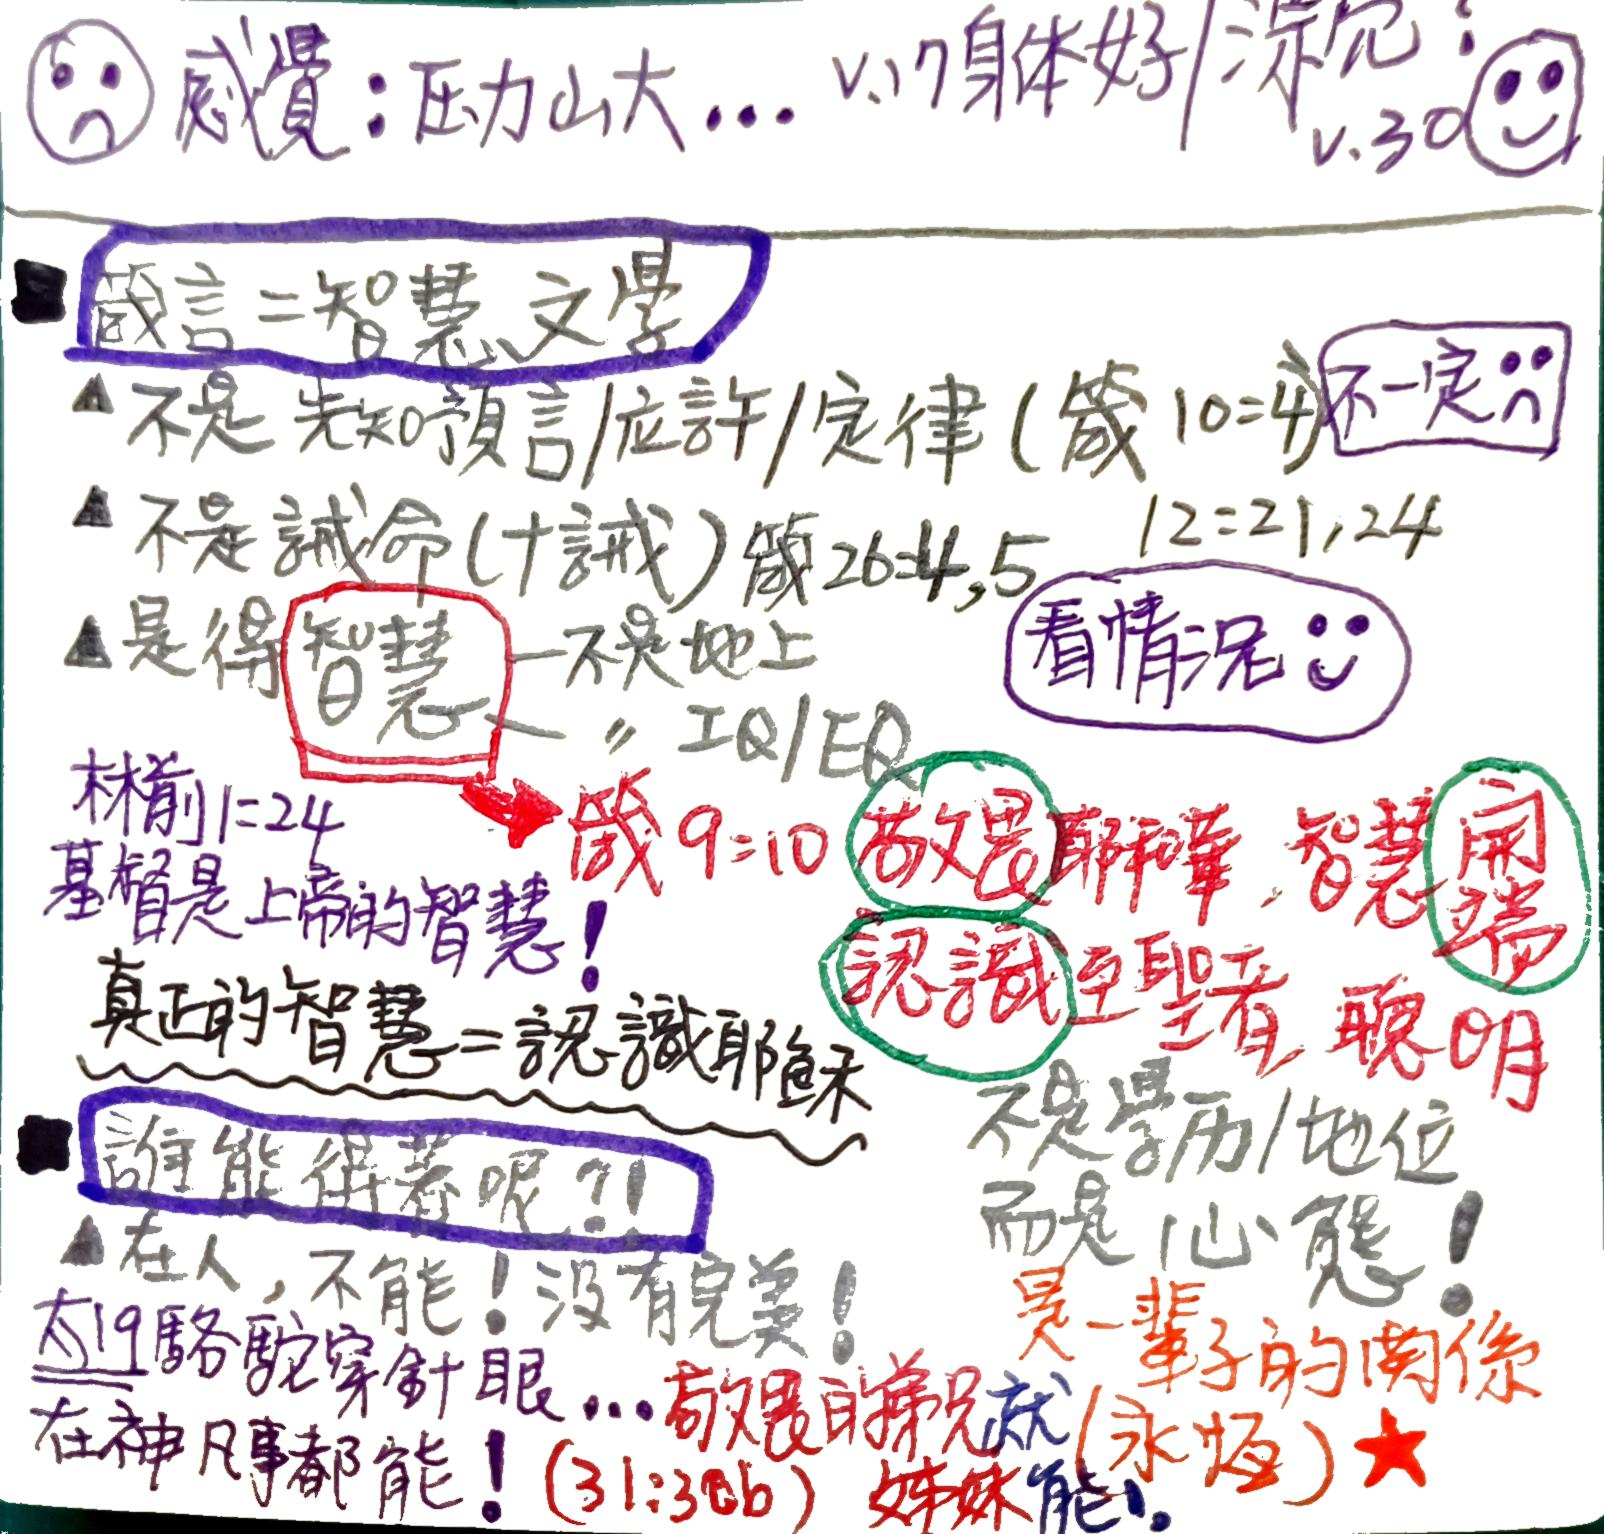 感覺：压力山大... v.17身体好/漂亮！
v.30
箴言＝智慧文學
不是先知預言/应許/定律(箴10:4) 不一定
12:21,24
不是誡命(十誡)箴26:4,5
看情况
是得智慧—不是地上
— 〃 IQ/EQ
林前1:24
基督是上帝的智慧！
箴9:10 敬畏耶和華，智慧開端
認識至聖者，聰明
真正的智慧＝認識耶穌
不是學历/地位
而是心態！
是一輩子的関係
(永恆)★
誰能得着呢?!
在人，不能！没有完美！
太19駱駝穿針眼...
在神凡事都能！
敬畏的弟兄就
(31:30b) 姊妹能！